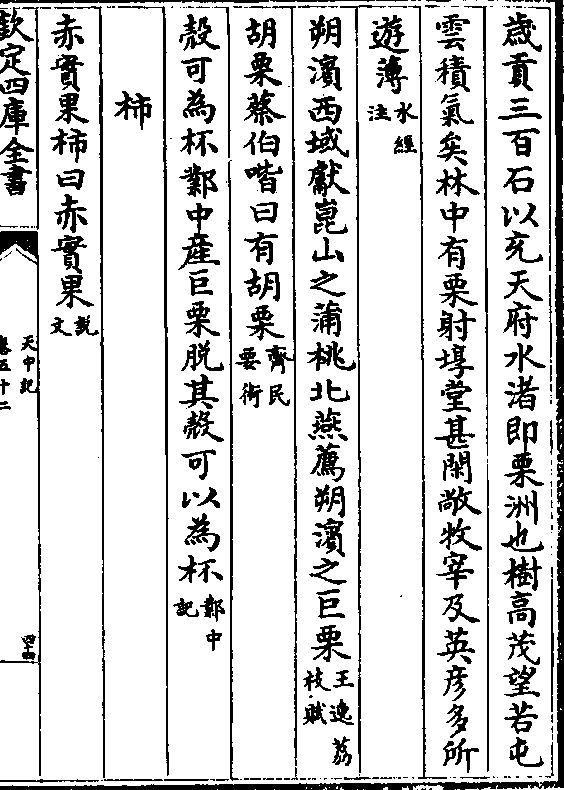 歳貢三百石以充天府水渚即栗洲也樹高茂望若屯
雲積氣矣林中有栗射埻堂甚閑敞牧宰及英彦多所
遊薄水經注
朔濱西域獻崑山之蒲桃北燕薦朔濱之巨栗王逸荔枝賦
胡栗蔡伯喈曰有胡栗齊民要術
殻可為杯鄴中産巨栗脱其殻可以為杯鄴中記
柿
赤實果柿曰赤實果説文
欽定四庫全書
天中記
卷五十二
四十四